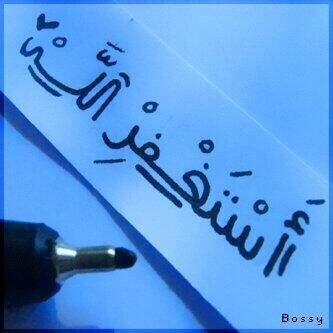 أَسْتَغْفِرُ اللّٰهَ
Bossy